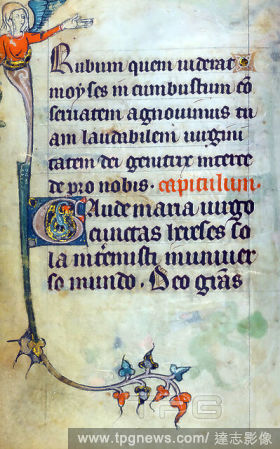 Rubum quem uiderat
moyses incumbustum cō
seruatem agnouimus tu
am laudabilem uirgini
tatem dei genitrix interce
de pro nobis. capitulum.
Gaude maria uirgo
cunctas hereses so
la interemisti in uniuer
so mundo. Deo gr̄as
TPG
www.tpgnews.com/ 達志影像